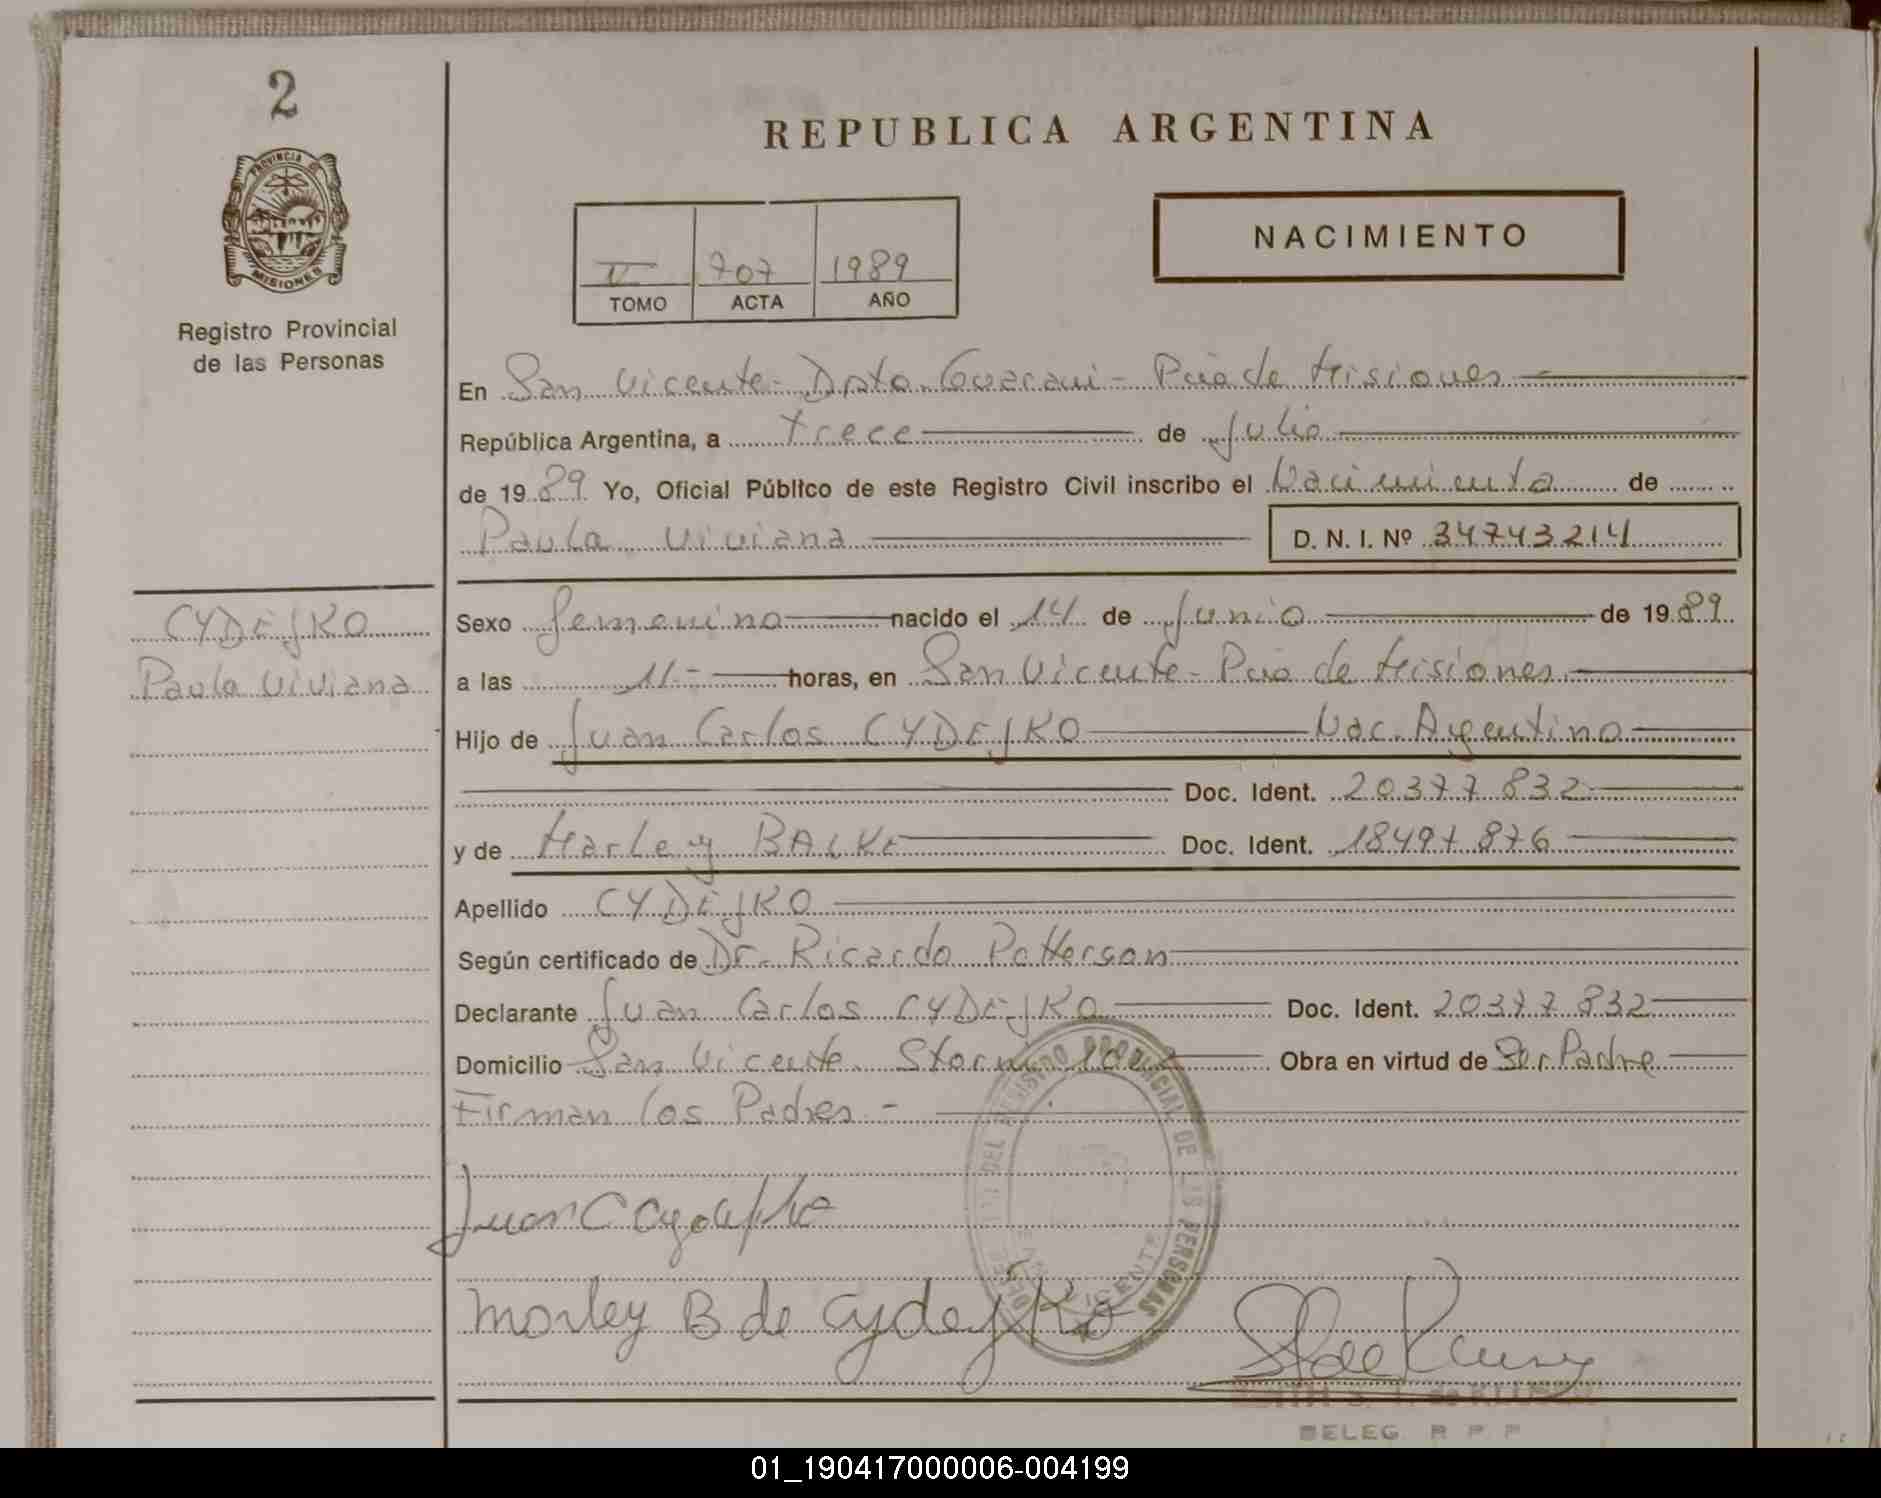 2
PROVINCIA DE
MISIONES
Registro Provincial
de las Personas
REPUBLICA ARGENTINA
NACIMIENTO
707 1989
TOMO ACTA AÑO
En San Vicente - Dpto. Guaraní - Pcia de Misiones
República Argentina, a trece de Julio
de 1989 Yo, Oficial Público de este Registro Civil inscribo el Nacimiento de
Paula Viviana D. N. I. Nº 34743214
CYDEJKO
Paula Viviana
Sexo femenino nacido el 14 de Junio de 1989
a las 11.- horas, en San Vicente - Pcia de Misiones
Hijo de Juan Carlos CYDEJKO Nac. Argentino
Doc. Ident. 20377832
y de Marley BALKE Doc. Ident. 18497876
Apellido CYDEJKO
Según certificado de Dr. Ricardo Patterson
Declarante Juan Carlos CYDEJKO Doc. Ident. 20377832
Domicilio San Vicente Obra en virtud de Ser Padre
Firman los Padres -
Juan C Cydejko
Marley B de Cydejko
DEL REGISTRO PROVINCIAL DE LAS PERSONAS
VICENTE
DELEG. R P P
01_190417000006-004199